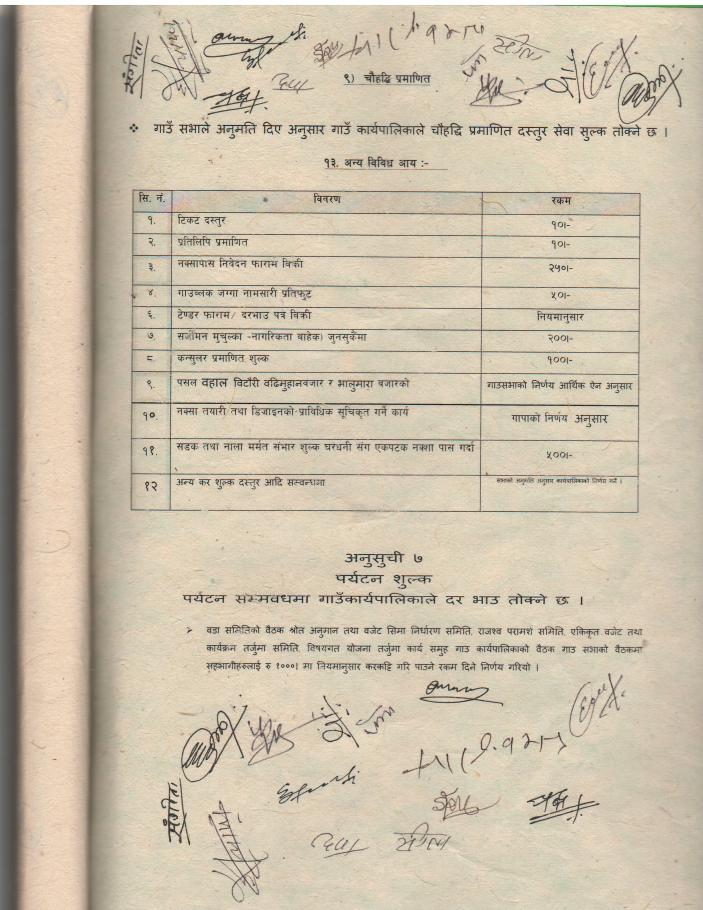 संगिता
९) चौहद्दि प्रमाणित
❖ गाउँ सभाले अनुमति दिए अनुसार गाउँ कार्यपालिकाले चौहद्दि प्रमाणित दस्तुर सेवा सुल्क तोक्ने छ ।
१३. अन्य विविध आय :-
सि. नं. विवरण रकम
१. टिकट दस्तुर १०।-
२. प्रतिलिपि प्रमाणित १०।-
३. नक्सापास निवेदन फाराम विक्री २५०।-
४. गाउब्लक जग्गा नामसारी प्रतिफुट ५०।-
६. टेण्डर फाराम/ दरभाउ पत्र विक्री नियमानुसार
७. सर्जमिन मुचुल्का -नागरिकता बाहेक) जुनसुकैमा २००।-
८. कन्सुलर प्रमाणित शुल्क १००।-
९. पसल वहाल विटौरी वढिमुहानवजार र भालुमारा बजारको गाउसभाको निर्णय आर्थिक ऐन अनुसार
१०. नक्सा तयारी तथा डिजाइनको प्राविधिक सूचिकृत गर्ने कार्य गापाको निर्णय अनुसार
११. सडक तथा नाला मर्मत संभार शुल्क घरधनी संग एकपटक नक्शा पास गर्दा ५००।-
१२ अन्य कर शुल्क दस्तुर आदि सम्वन्धमा सभाको अनुमति अनुसार कार्यपालिकाको निर्णय गर्ने ।
अनुसुची ७
पर्यटन शुल्क
पर्यटन सम्मवधमा गाउँकार्यपालिकाले दर भाउ तोक्ने छ ।
➢ वडा समितिको वैठक श्रोत अनुमान तथा वजेट सिमा निर्धारण समिति, राजश्व परामर्श समिति, एकिकृत वजेट तथा
कार्यक्रम तर्जुमा समिति, विषयगत योजना तर्जुमा कार्य समुह गाउ कार्यपालिकाको वैठक गाउ सभाको वैठकमा
सहभागीहरुलाई रु १०००। मा नियमानुसार करकट्टि गरि पाउने रकम दिने निर्णय गरियो ।
संगिता